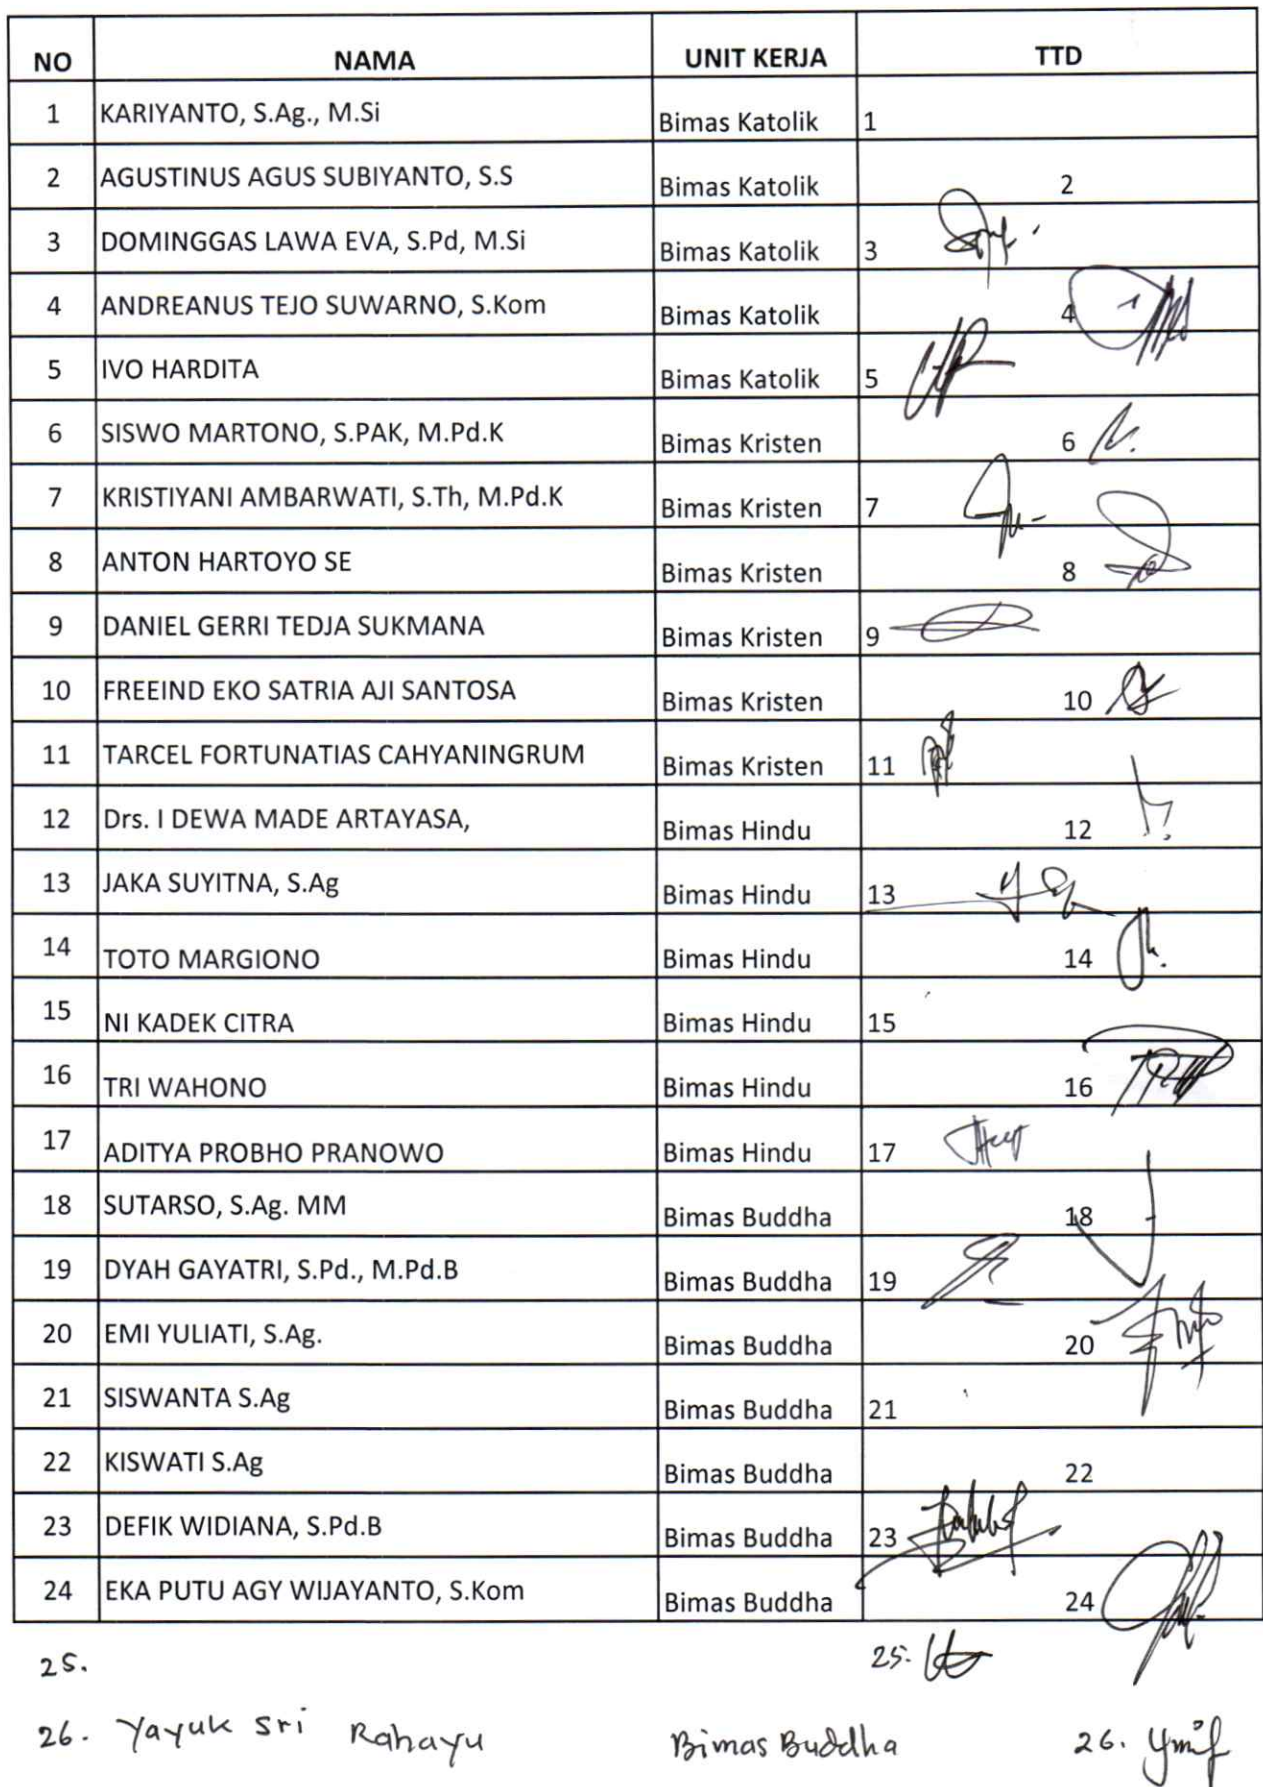 NO NAMA UNIT KERJA TTD
1 KARIYANTO, S.Ag., M.Si Bimas Katolik 1
2 AGUSTINUS AGUS SUBIYANTO, S.S Bimas Katolik 2
3 DOMINGGAS LAWA EVA, S.Pd, M.Si Bimas Katolik 3
4 ANDREANUS TEJO SUWARNO, S.Kom Bimas Katolik 4
5 IVO HARDITA Bimas Katolik 5
6 SISWO MARTONO, S.PAK, M.Pd.K Bimas Kristen 6
7 KRISTIYANI AMBARWATI, S.Th, M.Pd.K Bimas Kristen 7
8 ANTON HARTOYO SE Bimas Kristen 8
9 DANIEL GERRI TEDJA SUKMANA Bimas Kristen 9
10 FREEIND EKO SATRIA AJI SANTOSA Bimas Kristen 10
11 TARCEL FORTUNATIAS CAHYANINGRUM Bimas Kristen 11
12 Drs. I DEWA MADE ARTAYASA, Bimas Hindu 12
13 JAKA SUYITNA, S.Ag Bimas Hindu 13
14 TOTO MARGIONO Bimas Hindu 14
15 NI KADEK CITRA Bimas Hindu 15
16 TRI WAHONO Bimas Hindu 16
17 ADITYA PROBHO PRANOWO Bimas Hindu 17
18 SUTARSO, S.Ag. MM Bimas Buddha 18
19 DYAH GAYATRI, S.Pd., M.Pd.B Bimas Buddha 19
20 EMI YULIATI, S.Ag. Bimas Buddha 20
21 SISWANTA S.Ag Bimas Buddha 21
22 KISWATI S.Ag Bimas Buddha 22
23 DEFIK WIDIANA, S.Pd.B Bimas Buddha 23
24 EKA PUTU AGY WIJAYANTO, S.Kom Bimas Buddha 24
25. 25.
26. Yayuk Sri Rahayu Bimas Buddha 26.